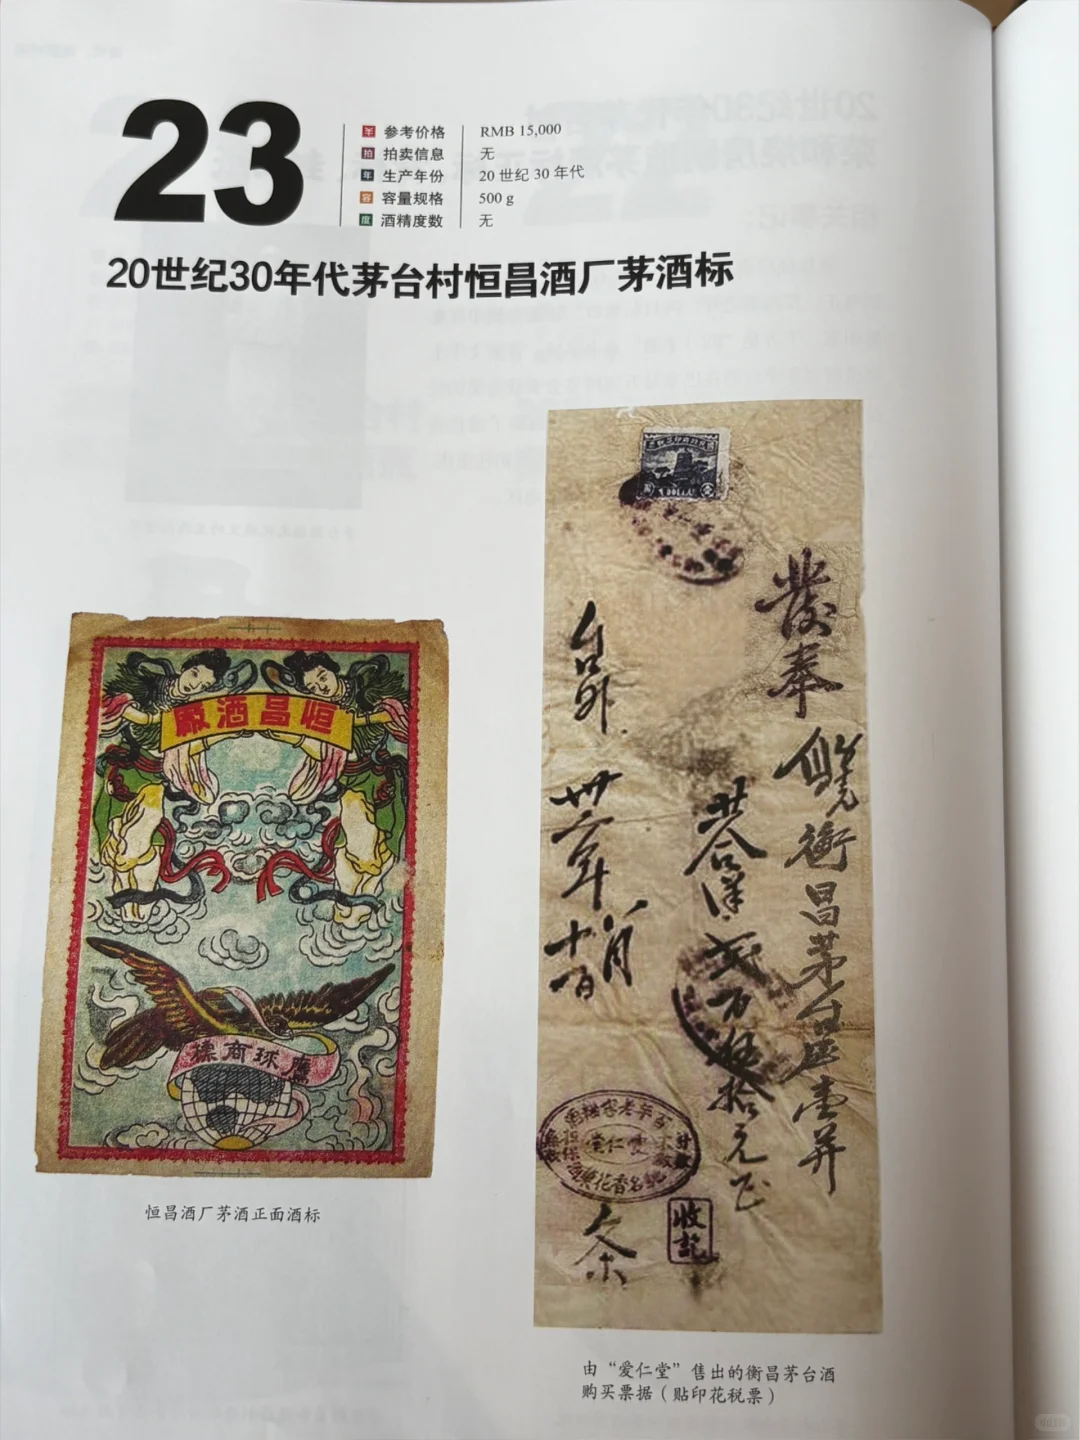 23
参考价格 RMB 15,000
拍卖信息 无
生产年份 20 世纪 30 年代
容量规格 500 g
酒精度数 无
20世纪30年代茅台村恒昌酒厂茅酒标
廠酒昌恒
標商球鷹
恒昌酒厂茅酒正面酒标
發奉
衡昌茅台酒壹并
廿合洋弍万伍拾元正
台照
卅二年
十月
堂仁愛
收訖
由“爱仁堂”售出的衡昌茅台酒
购买票据（贴印花税票）